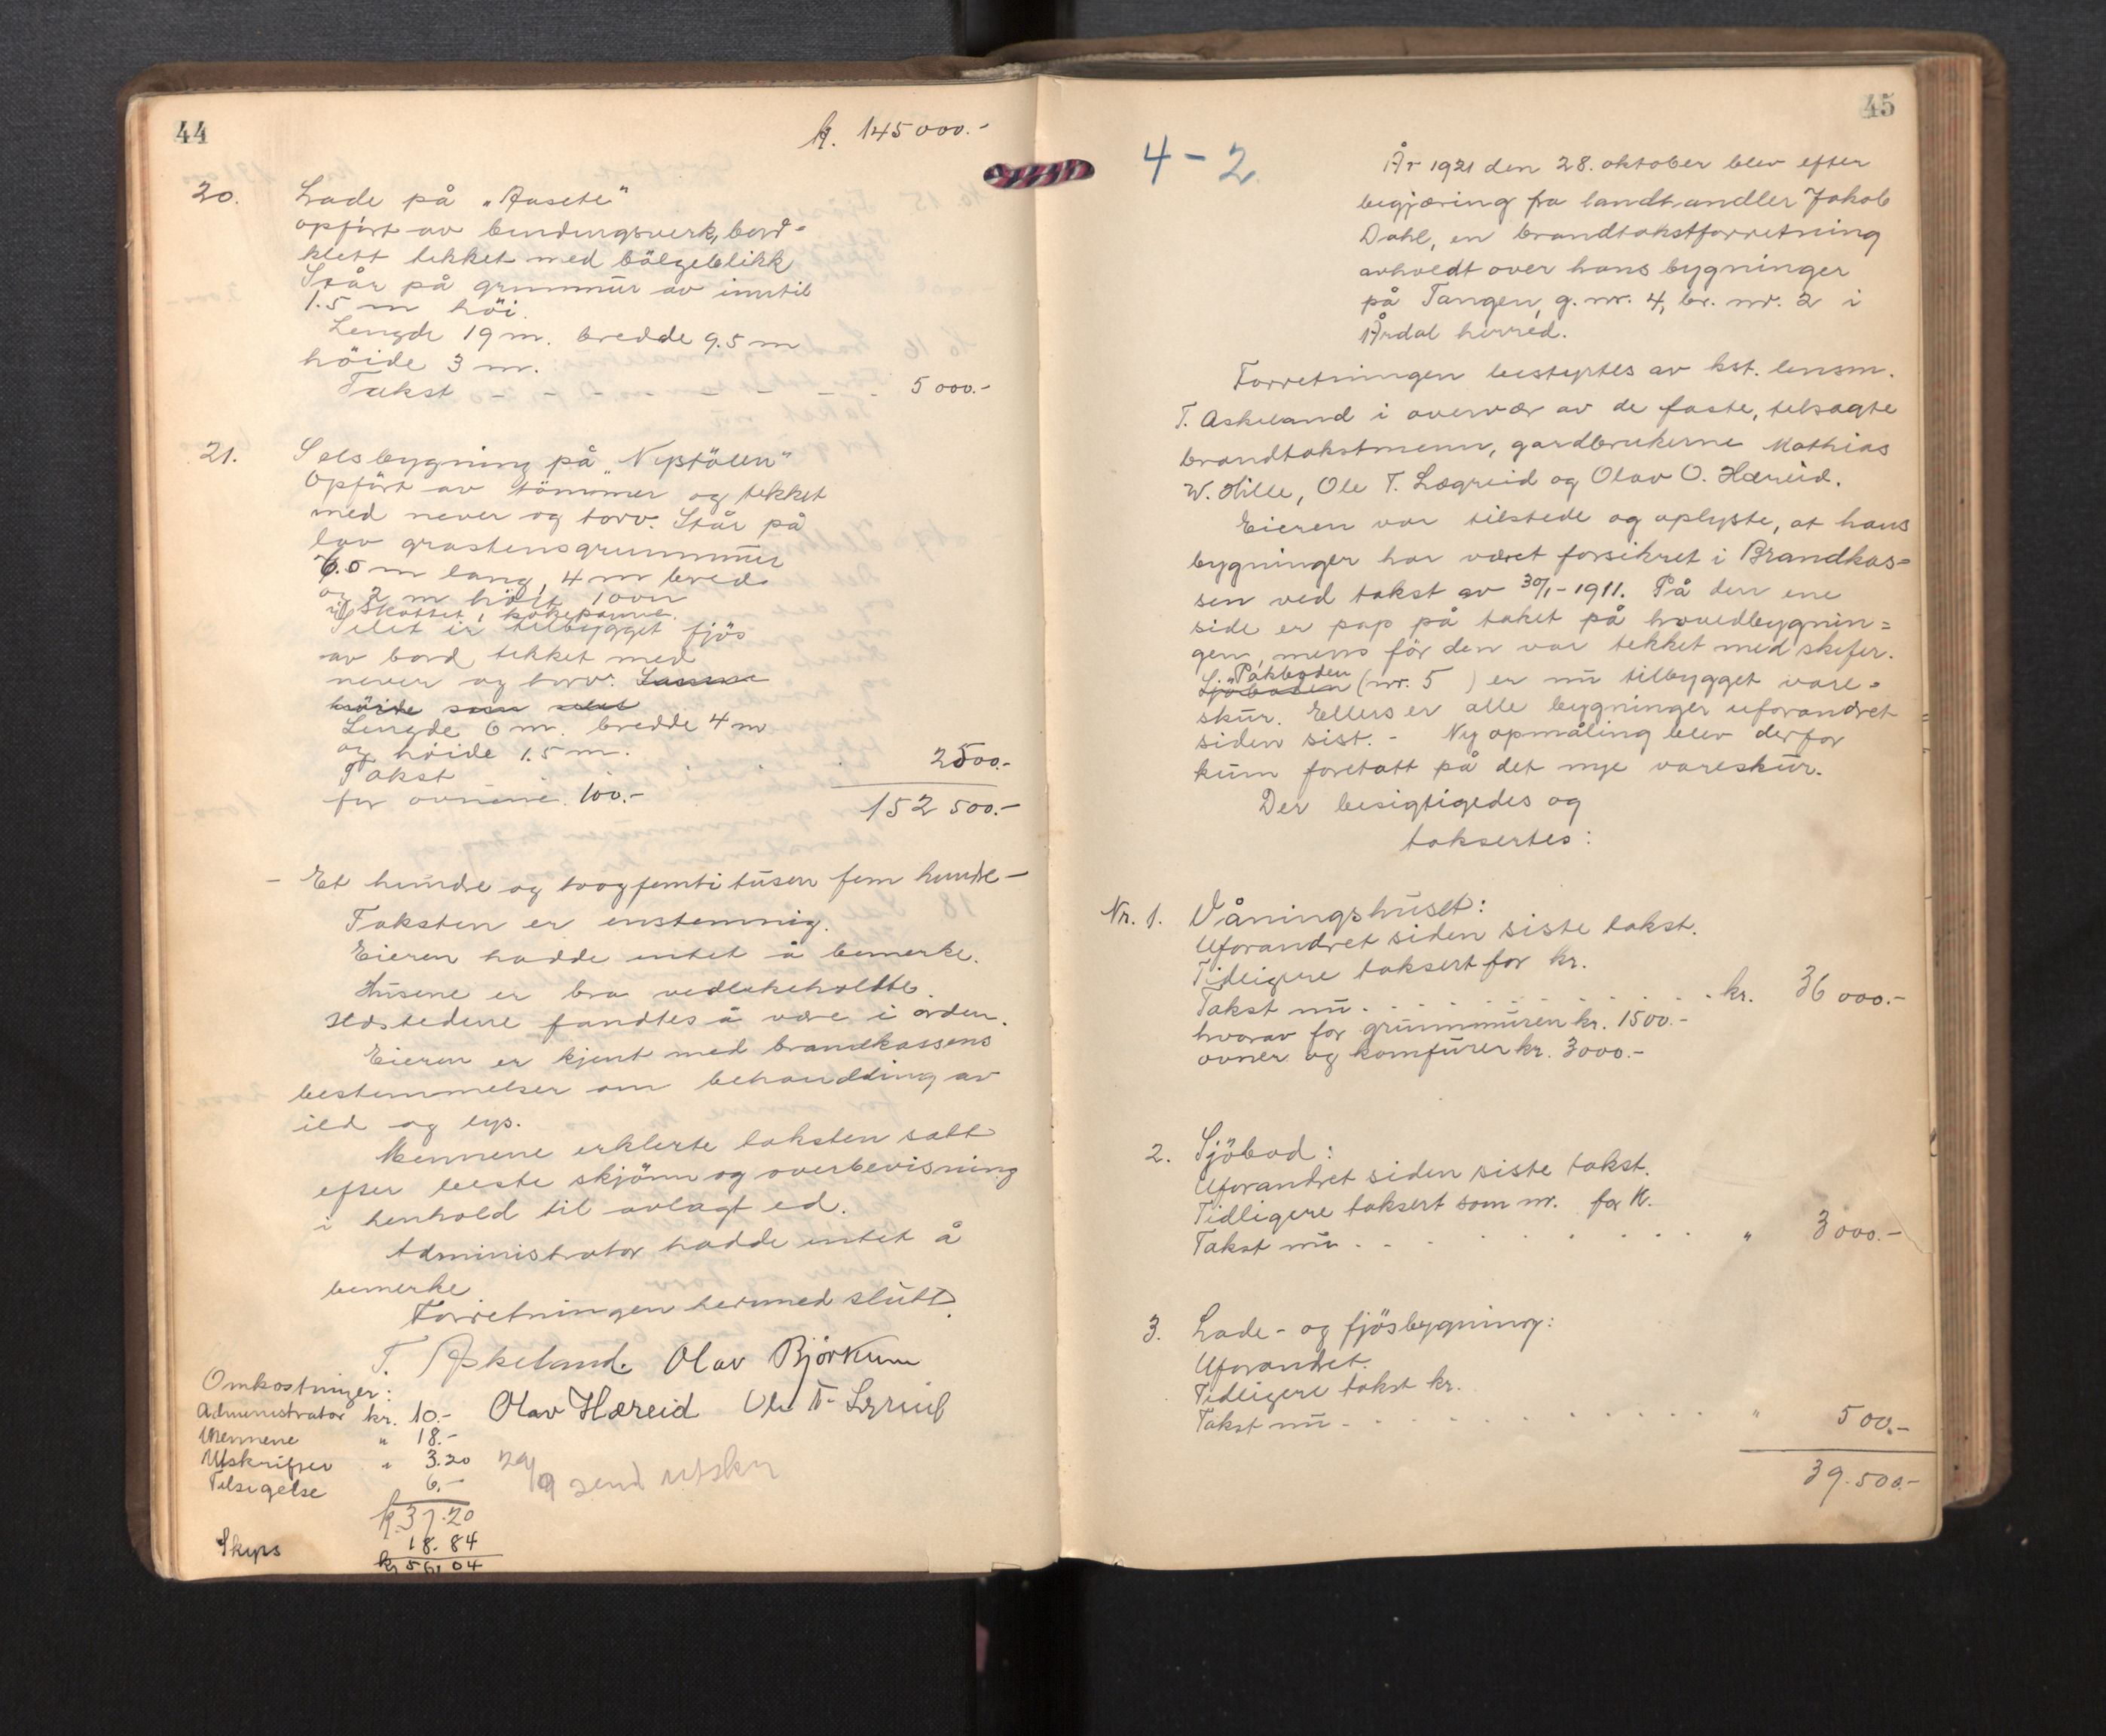 44
kr. 145000.-
20. Lade på "Aasete"
opført av bindingsverk, bord-
klett tekket med bölgeblikk
Står på grunmur av inntil
1.5 m höi.
Lengde 19 m. bredde 9.5 m
höide 3 m.
Takst - - - - - - - 5000.-
21. Selsbygning på "Nystölen"
Opfört av tömmer og tekket
med never og torv. Står på
lav grastensgrunnmur
7.5 m lang, 4 m bred
og 2 m höit. 1 ovn
Selet er tilbygget fjös
av bord tekket med
never og torv. Samme
höide som selet
Lengde 6 m. bredde 4 m
og höide 1.5 m.
Takst 2500.-
for ovnene 100.-
152 500.-
- Et hundre og toogfemti tusen fem hundre -
Taksten er enstemmig.
Eieren hadde intet å bemerke.
Husene er bra vedlikeholdte.
Ildstedene fandtes å være i orden.
Eieren er kjent med brandkassens
bestemmelser om behandling av
ild og lys.
Mennene erklerte taksten satt
efter beste skjönn og overbevisning
i henhold til avlagt ed.
Administrator hadde intet å
bemerke
Forretningen hermed slutt.
T. Askeland. Olav Björkum
Olav Hæreid Ole T. Lægreid
Omkostninger:
Administrator kr. 10.-
Mennene " 18.-
Utskrifter " 3.20
Tilsigelse 6.-
kr. 37.20
Skyss 18.84
kr 56.04
29/9 send utskr
45
4-2.
År 1921 den 28. oktober blev efter
begjæring fra landhandler Jakob
Dahl, en brandtakstforretning
avholdt over hans bygninger
på Tangen, g. nr. 4, br. nr. 2 i
Årdal herred.
Forretningen bestyrtes av kst. lensm.
T. Askeland i overvær av de faste, tilsagte
brandtakstmenn, gardbrukerne Mathias
W. Hille, Ole T. Lægreid og Olav O. Hæreid.
Eieren var tilstede og oplyste, at hans
bygninger har været forsikret i Brandkas=
sen ved takst av 30/1-1911. På den ene
side er pap på taket på hovedbygnin=
gen, mens för den var tekket med skifer.
Pakboden
Sjöboden (nr. 5 ) er nu tilbygget vare=
skur. Ellers er alle bygninger uforandret
siden sist. - Ny opmåling blev derfor
kun foretatt på det nye vareskur.
Der besigtigedes og
taksertes:
Nr. 1. Våningshuset:
Uforandret siden siste takst.
Tidligere taksert for kr.
Takst nu . . . . . . . . . kr. 36 000.-
hvorav for grunnmuren kr. 1500.-
ovner og komfurer kr. 3000.-
2. Sjöbod:
Uforandret siden siste takst.
Tidligere taksert som nr. for K.
Takst nu . . . . . . . . . " 3 000.-
3. Lade- og fjösbygning:
Uforandret.
Tidligere takst kr.
Takst nu . . . . . . . . . " 500.-
39.500.-